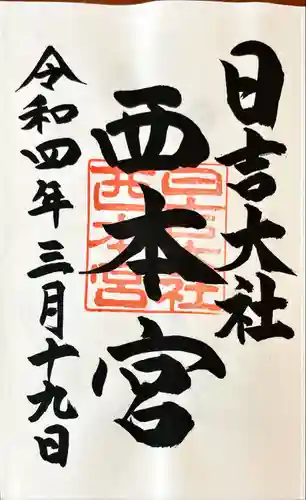 日吉大社
西本宮
令和四年三月十九日
日吉大社
西本宮